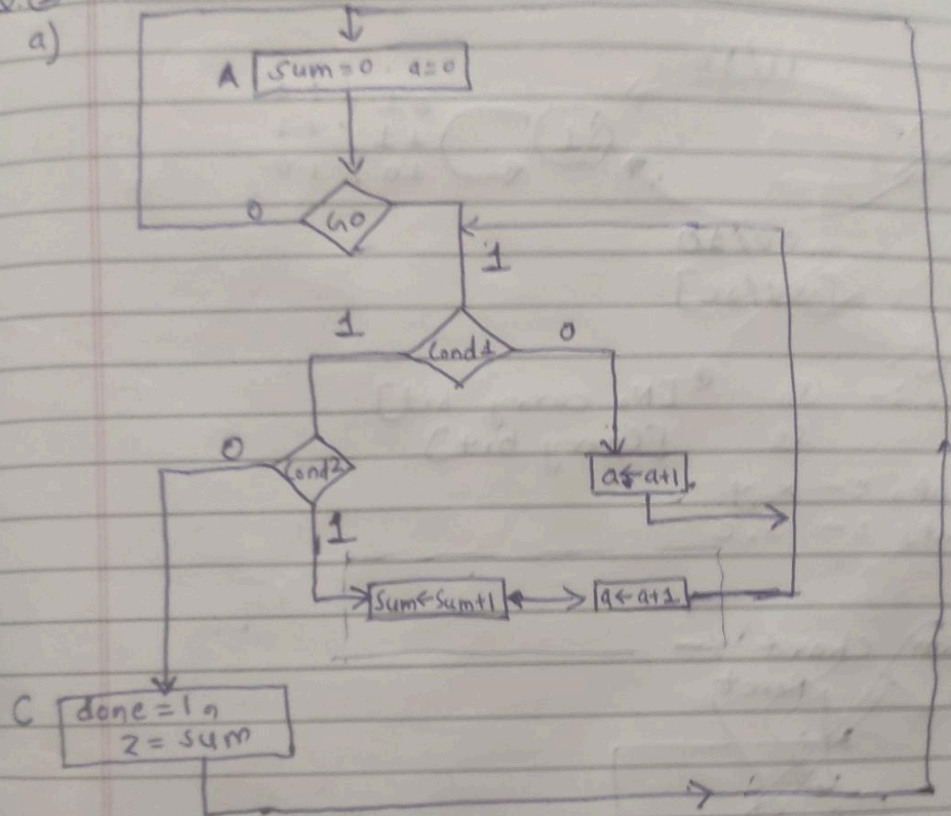 a)
A sum=0 a=0
0 GO
1
1 Cond1 0
0 Cond2 a←a+1
1
Sum←Sum+1 a←a+1
C done=1,
z = sum